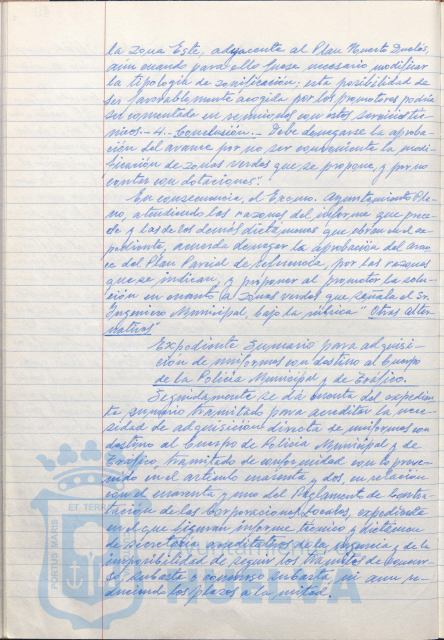 la zona Este, adyacente al Plan Huerto Dueñas,
aún cuando para ello fuese necesario modificar
la tipología de zonificación; esta posibilidad de
ser favorablemente acogida por los promotores podría
ser comentada en reuniones con estos servicios téc-
nicos.- 4.- Conclusión.- Debe denegarse la aproba-
ción del avance por no ser conveniente la modi-
ficación de zonas verdes que se propone, y por no
contar con dotaciones".
En consecuencia, el Excmo. Ayuntamiento Ple-
no, atendiendo las razones del informe que prece-
de y las de los demás dictámenes que obran en el ex-
pediente, acuerda denegar la aprobación del avan-
ce del Plan Parcial de referencia, por las razones
que se indican, y proponer al promotor la solu-
ción en cuanto a zonas verdes que señala el Sr.
Ingeniero Municipal, bajo la rúbrica "Otras alter-
nativas"
Expediente Sumario para adquisi-
ción de uniformes con destino al Cuerpo
de la Policía Municipal y de Tráfico.
Seguidamente se dá cuenta del expedien-
te sumario tramitado para acreditar la nece-
sidad de adquisición directa de uniformes con
destino al Cuerpo de Policía Municipal y de
Tráfico, tramitado de conformidad con lo preve-
nido en el artículo cuarenta y dos, en relación
con el cuarenta y uno del Reglamento de Contra-
tación de las Corporaciones Locales, expediente
en el que figuran informe técnico y dictamen
de Secretaría acreditativos de la urgencia y de la
imposibilidad de seguir los trámites de concur-
so, subasta o concurso subasta, ni aun re-
duciendo los plazos a la mitad.
PORTUS MARIS
ET TERR
Ayuntamiento de
HUELVA